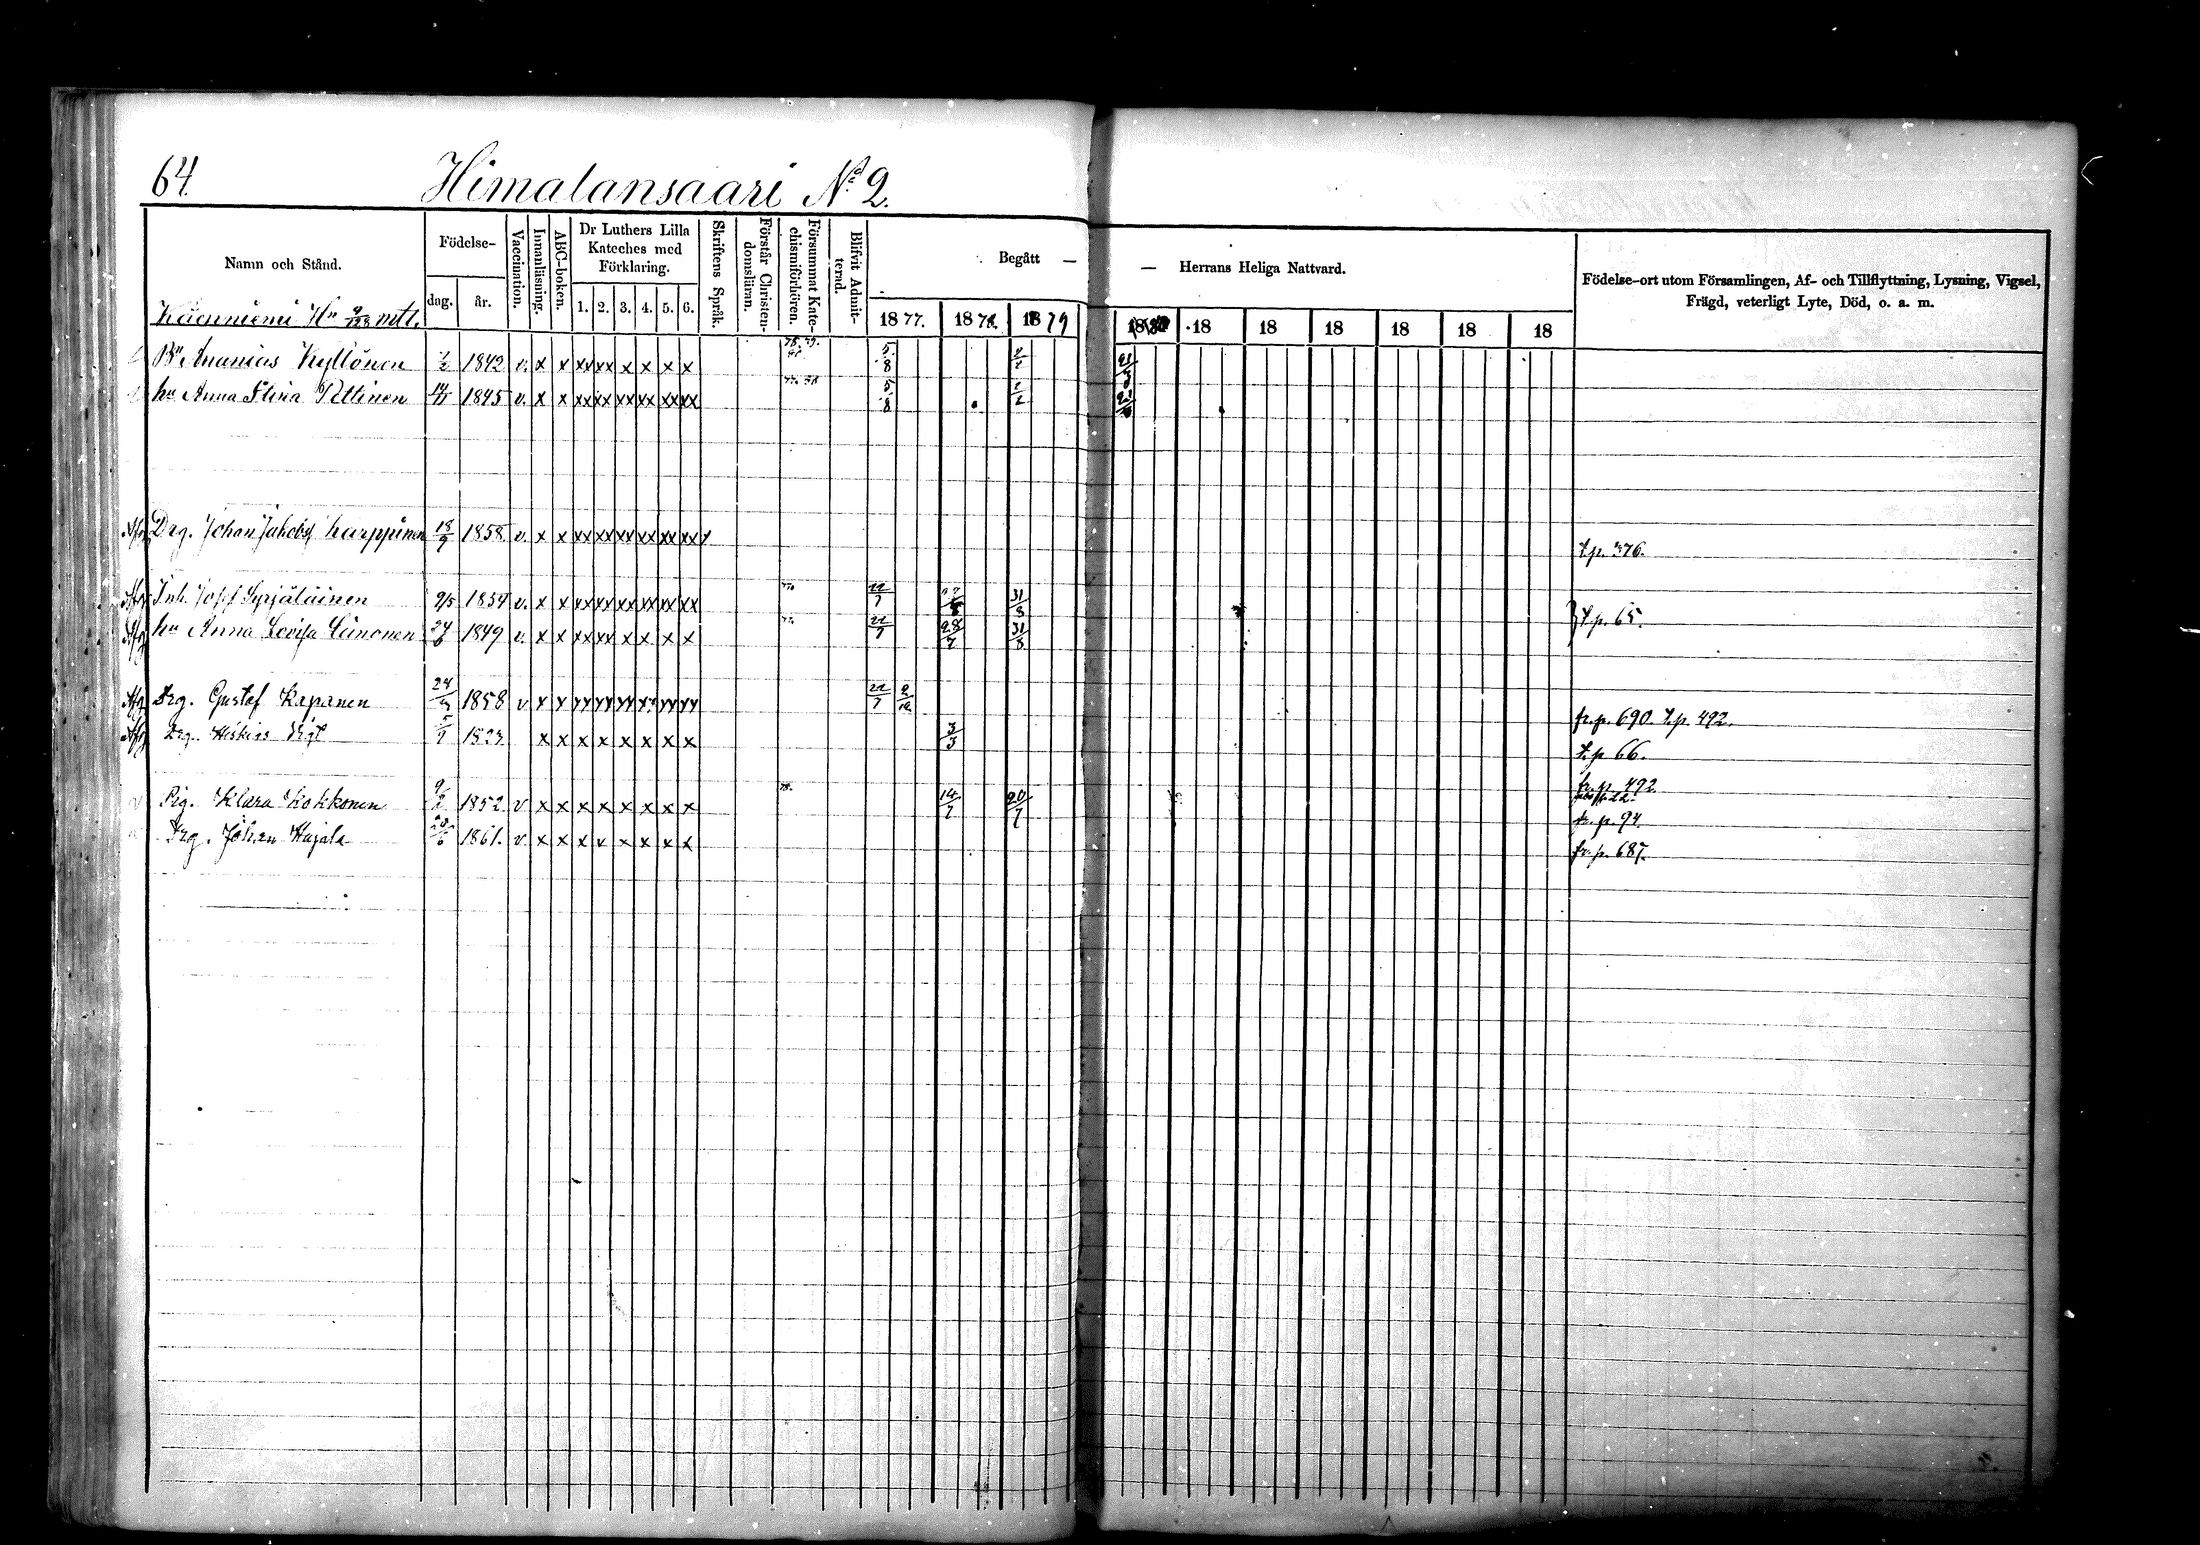 64.
Himalansaari No 2.
Namn och Stånd.
Födelse-
dag.
år.
Vaccination.
Innanläsning.
ABC-boken.
Dr Luthers Lilla
Kateches med
Förklaring.
1. 2. 3. 4. 5. 6.
Skriftens Språk.
Förstår Christen-
domsläran.
Försummat Kate-
chismiförhören.
Blifvit Admit-
terad.
Begått —
— Herrans Heliga Nattvard.
1877. 1878. 1879 18 18 18 18 18 18
Födelse-ort utom Församlingen, Af- och Tillflyttning, Lysning, Vigsel,
Frägd, veterligt Lyte, Död, o. a. m.
Käenniemi Hn 9/128 mtl.
Bn Ananias Kyllönen 1842 v. x x xx xx x x x x 5/8
hu Anna Stina Pettinen 1845 v. x x xx xx xx xx xx xx 5/8
Afg Drg. Johan Jakobsf Karppinen 18/9 1858 v. x x xx xx xx xx xx xx t.p. 376.
Afg Inh. Josef Syrjäläinen 9/5 1854 v. x x xx xx xx xx xx xx 22/7 31/8
Afg hu Anna Lovisa Leinonen 24/6 1849 v. x x xx xx x x x x 22/7 28/7 31/8 t.p. 65.
Afg Drg. Gustaf Kapanen 1858 v x x xx xx xx xx xx xx 22/7 fr.p. 690. t.p. 492.
Afg Drg. x x x x x x x x 3/3 t.p 66.
fr. p. 492
Pig. Klara Kokkonen 9/2 1852 v x x x x x x x x 14/7 20/7 fr. p. 94.
Drg. Johan Hujala 1861. v x x x x x x x x fr. p. 687.